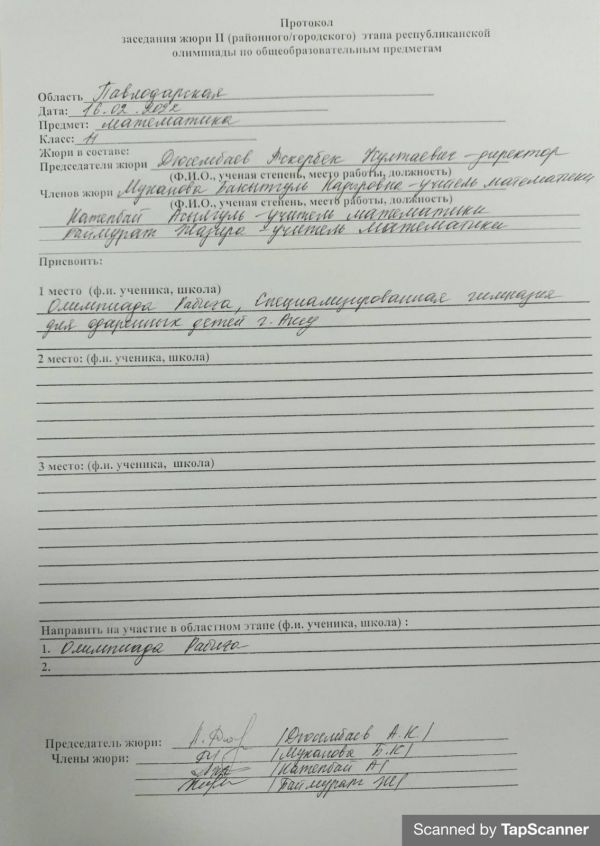 Протокол
заседания жюри II (районного/городского) этапа республиканской
олимпиады по общеобразовательным предметам
Область Павлодарская
Дата: 16.02.2022
Предмет: математика
Класс: 11
Жюри в составе:
Председателя жюри Дюсембаев Аскербек Култаевич - директор
(Ф.И.О., ученая степень, место работы, должность)
Членов жюри Муканова Бакытгуль Кадыровна - учитель математики
(Ф.И.О., ученая степень, место работы, должность)
Катепбай Асылгуль - учитель математики
Баймурат Жазира - учитель математики
Присвоить:
1 место (ф.и. ученика, школа)
Олимпиада Рабига, Специализированная гимназия
для одаренных детей г. Аксу
2 место: (ф.и. ученика, школа)
3 место: (ф.и. ученика, школа)
Направить на участие в областном этапе (ф.и. ученика, школа) :
1. Олимпиада Рабига
2.
Председатель жюри: /Дюсембаев А.К/
Члены жюри: /Муканова Б.К/
/Катепбай А/
/Баймурат Ж/
Scanned by TapScanner